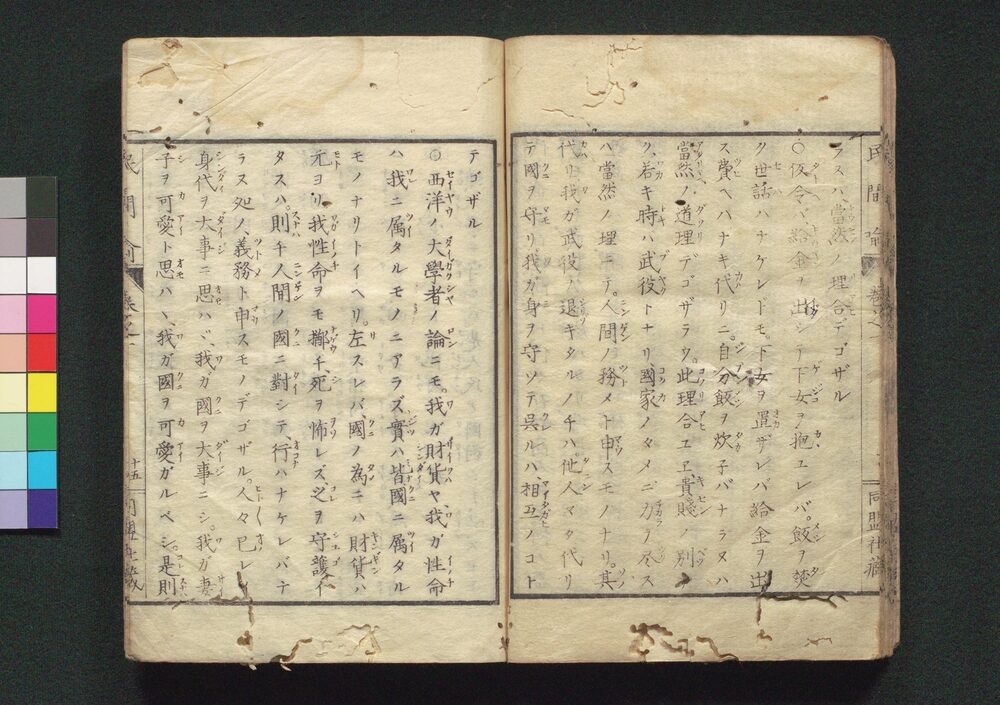 ラヌハ當然ノ理合デゴザル
○仮令バ給金ヲ出シテ下女ヲ抱ユレバ。飯ヲ焚
ク世話ハナケレドモ。下女ヲ置ザレバ給金ヲ出
ス費ヘハナキ代リニ。自分飯ヲ炊子バナラヌハ
當然ノ道理デゴザラウ。此理合ユヱ貴賤ノ別ナ
ク、若キ時ハ武役トナリ國家ノタメニ力ヲ尽ス
ハ當然ノ理ニテ。人間ノ務メト申スモノナリ。其
代リ我ガ武役ヲ退キタルノチハ他人マタ代リ
テ國ヲ守リ我ガ身ヲ守ツテ呉ルハ、相互ノコト
テゴザル
○西洋ノ大學者ノ論ニモ。我ガ財貨ヤ我ガ性命
ハ我ニ属タルモノニアラズ實ハ皆國ニ属タル
モノナリトイヘリ。左スレバ、國ノ為ニハ財貨ハ
元ヨリ我性命ヲモ擲チ、死ヲ怖レズ、之ヲ守護イ
タスハ。則チ人間ノ國ニ對シテ、行ハナケレバナ
ラヌ処ノ、義務ト申スモノデゴザル。人々已レノ
身代ヲ大事ニ思ハヾ、我ガ國ヲ大事ニシ。我ガ妻
子ヲ可愛ト思ハヽ、我ガ國ヲ可愛ガルベシ。是則
民間 巻之一
同盟社藏
十五